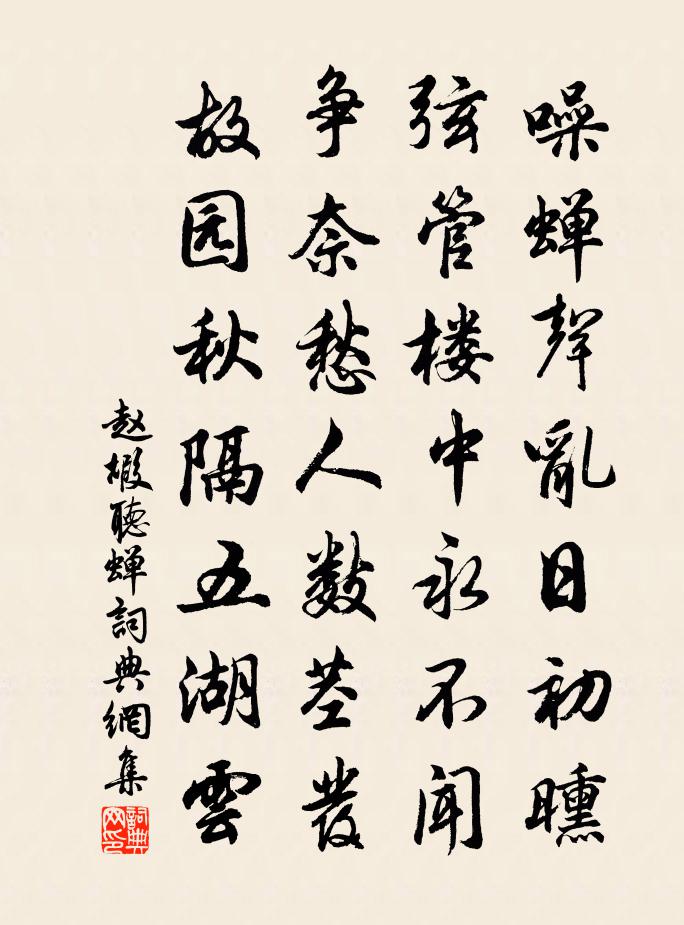 噪蝉聲亂日初曛
弦管楼中永不闻
争奈愁人数茎發
故园秋隔五湖雲
赵嘏聽蝉詞典網集
詞典网印